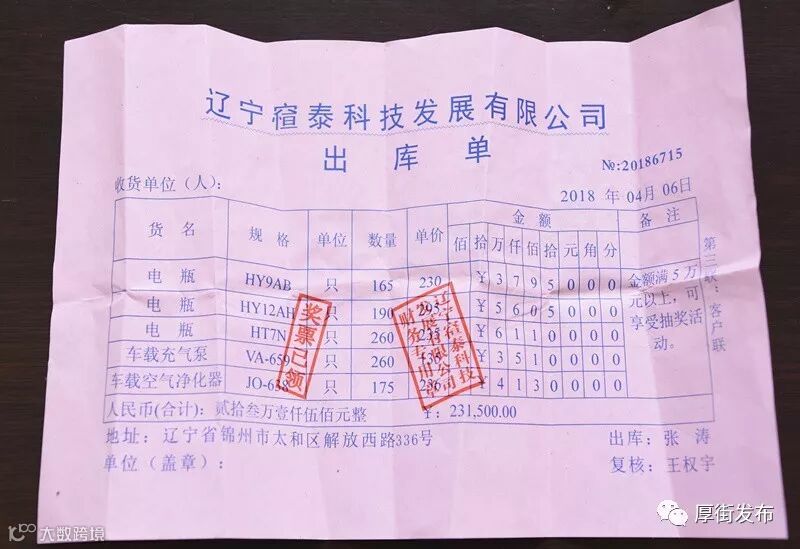 辽宁泰科技发展有限公司
出库单
№:20186715
收货单位（人）：
2018 年 04月 06日
货名 规格 单位 数量 单价 金额 备注
佰 拾 万 仟 佰 拾 元 角 分
电瓶 HY9AB 只 165 230 ¥ 3 7 9 5 0 0 0
电瓶 HY12AH 只 190 295 ¥ 5 6 0 5 0 0 0
电瓶 HT7N 只 260 235 ¥ 6 1 1 0 0 0 0
车载充气泵 VA-659 只 260 ¥ 3 5 1 0 0 0 0
车载空气净化器 JO-638 只 175 236 ¥ 4 1 3 0 0 0 0
金额满 5 万
元以上，可
享受抽奖活
动。
第三联：客户联
奖票已领
辽宁泰科技
发展有限公司
财务专用章
人民币(合计)：贰拾叁万壹仟伍佰元整 ¥：231,500.00
地址：辽宁省锦州市太和区解放西路336号 出库：张涛
单位（盖章）： 复核：王权宇
厚街发布
大数跨境